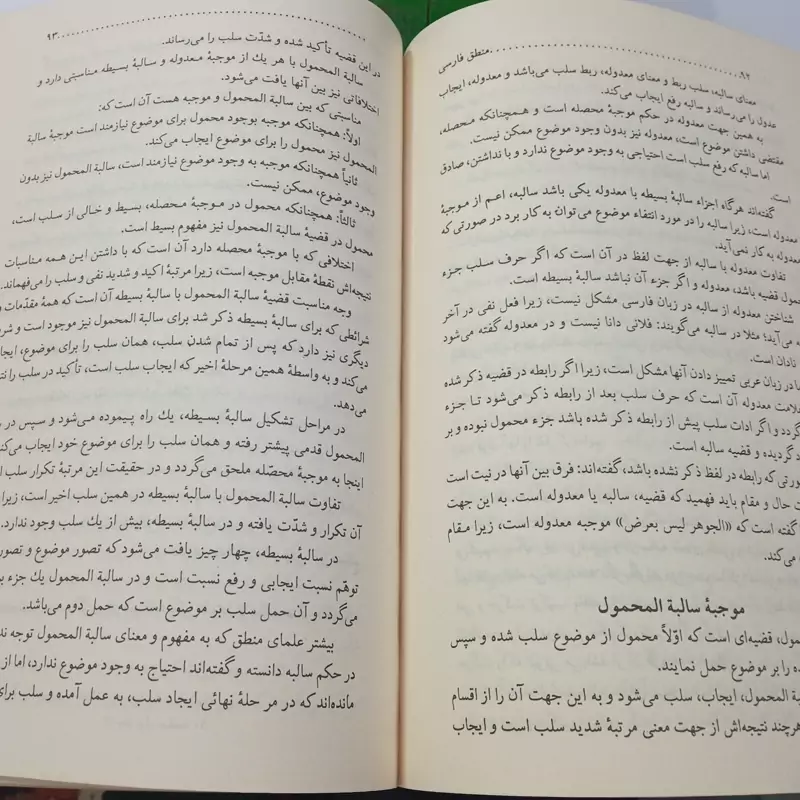 ۹۲ منطق فارسی
معنای سالبه، سلب ربط و معنای معدوله، ربط سلب می‌باشد و معدوله، ایجاب
عدول را می‌رساند و سالبه رفع ایجاب می‌کند.
به همین جهت معدوله در حکم موجبهٔ محصله است و همچنانکه محصله،
مقتضی داشتن موضوع است، معدوله نیز بدون وجود موضوع ممکن نیست.
اما سالبه که رفع سلب است احتیاجی به وجود موضوع ندارد و با نداشتن، صادق
است.
گفته‌اند هرگاه اجزاء سالبهٔ بسیطه با معدوله یکی باشد سالبه، اعم از موجبهٔ
معدوله است، زیرا سالبه را در مورد انتفاء موضوع می‌توان به کار برد در صورتی که
معدوله به کار نمی‌آید.
تفاوت معدوله با سالبه از جهت لفظ در آن است که اگر حرف سلب جزء
محمول قضیه باشد، معدوله و اگر جزء آن نباشد سالبهٔ بسیطه است.
شناختن معدوله از سالبه در زبان فارسی مشکل نیست، زیرا فعل نفی در آخر
می‌آید؛ مثلا در سالبه می‌گویند: فلانی دانا نیست و در معدوله گفته می‌شود
نادان است.
در زبان عربی تمییز دادن آنها مشکل است، زیرا اگر رابطه در قضیه ذکر شده
علامت معدوله آن است که حرف سلب بعد از رابطه ذکر می‌شود تا جزء
گردد و اگر ادات سلب پیش از رابطه ذکر شده باشد جزء محمول نبوده و بر
گردیده و قضیه سالبه است.
صورتی که رابطه در لفظ ذکر نشده باشد، گفته‌اند: فرق بین آنها در نیت است
حال و مقام باید فهمید که قضیه، سالبه یا معدوله است. به این جهت
گفته است که «الجوهر لیس بعرض» موجبه معدوله است، زیرا مقام
می‌کند.
موجبهٔ سالبة المحمول
قضیه‌ای است که اوّلاً محمول از موضوع سلب شده و سپس
را بر موضوع حمل نمایند.
المحمول، ایجاب، سلب می‌شود و به این جهت آن را از اقسام
هرچند نتیجه‌اش از جهت معنی مرتبهٔ شدید سلب است و ایجاب
۹۳
در این قضیه تأکید شده و شدّت سلب را می‌رساند.
سالبة المحمول با هر یك از موجبهٔ معدوله و سالبهٔ بسیطه مناسبتی دارد و
اختلافاتی نیز بین آنها یافت می‌شود.
مناسبتی که بین سالبة المحمول و موجبه هست آن است که:
اولاً: همچنانکه موجبه بوجود محمول برای موضوع نیازمند است موجبهٔ سالبة
المحمول نیز محمول را برای موضوع ایجاب می‌کند.
ثانیاً همچنانکه موجبه به وجود موضوع نیازمند است، سالبة المحمول نیز بدون
وجود موضوع، ممکن نیست.
ثالثاً: همچنانکه محمول در موجبهٔ محصله، بسیط و خالی از سلب است،
محمول در قضیهٔ سالبة المحمول نیز مفهوم بسیط است.
اختلافی که با موجبهٔ محصله دارد آن است که با داشتن این همه مناسبات
نتیجه‌اش نقطهٔ مقابل موجبه است، زیرا مرتبهٔ اکید و شدید نفی و سلب را می‌فهماند.
وجه مناسبت قضیهٔ سالبة المحمول با سالبهٔ بسیطه آن است که همهٔ مقدّمات و
شرائطی که برای سالبهٔ بسیطه ذکر شد برای سالبة المحمول نیز موجود است و
دیگری نیز دارد که پس از تمام شدن سلب، همان سلب را برای موضوع،
می‌کند و به واسطهٔ همین مرحلهٔ اخیر که ایجاب سلب است، تأکید در سلب را
می‌دهد.
در مراحل تشکیل سالبهٔ بسیطه، یك راه پیموده می‌شود و سپس در
المحمول قدمی پیشتر رفته و همان سلب را برای موضوع خود ایجاب
اینجا به موجبهٔ محصّله ملحق می‌گردد و در حقیقت این مرتبهٔ تکرار سلب
تفاوت سالبة المحمول با سالبهٔ بسیطه در همین سلب اخیر است، زیرا
آن تکرار و شدّت یافته و در سالبهٔ بسیطه، بیش از یك سلب وجود ندارد.
در سالبهٔ بسیطه، چهار چیز یافت می‌شود که تصور موضوع و تصور
توهّم نسبت ایجابی و رفع نسبت است و در سالبة المحمول یك جزء
می‌گردد و آن حمل سلب بر موضوع است که حمل دوم می‌باشد.
بیشتر علمای منطق که به مفهوم و معنای سالبة المحمول توجه
در حکم سالبه دانسته و گفته‌اند احتیاج به وجود موضوع ندارد، اما از
مانده‌اند که در مرحلهٔ نهائی ایجاد سلب، به عمل آمده و سلب برای